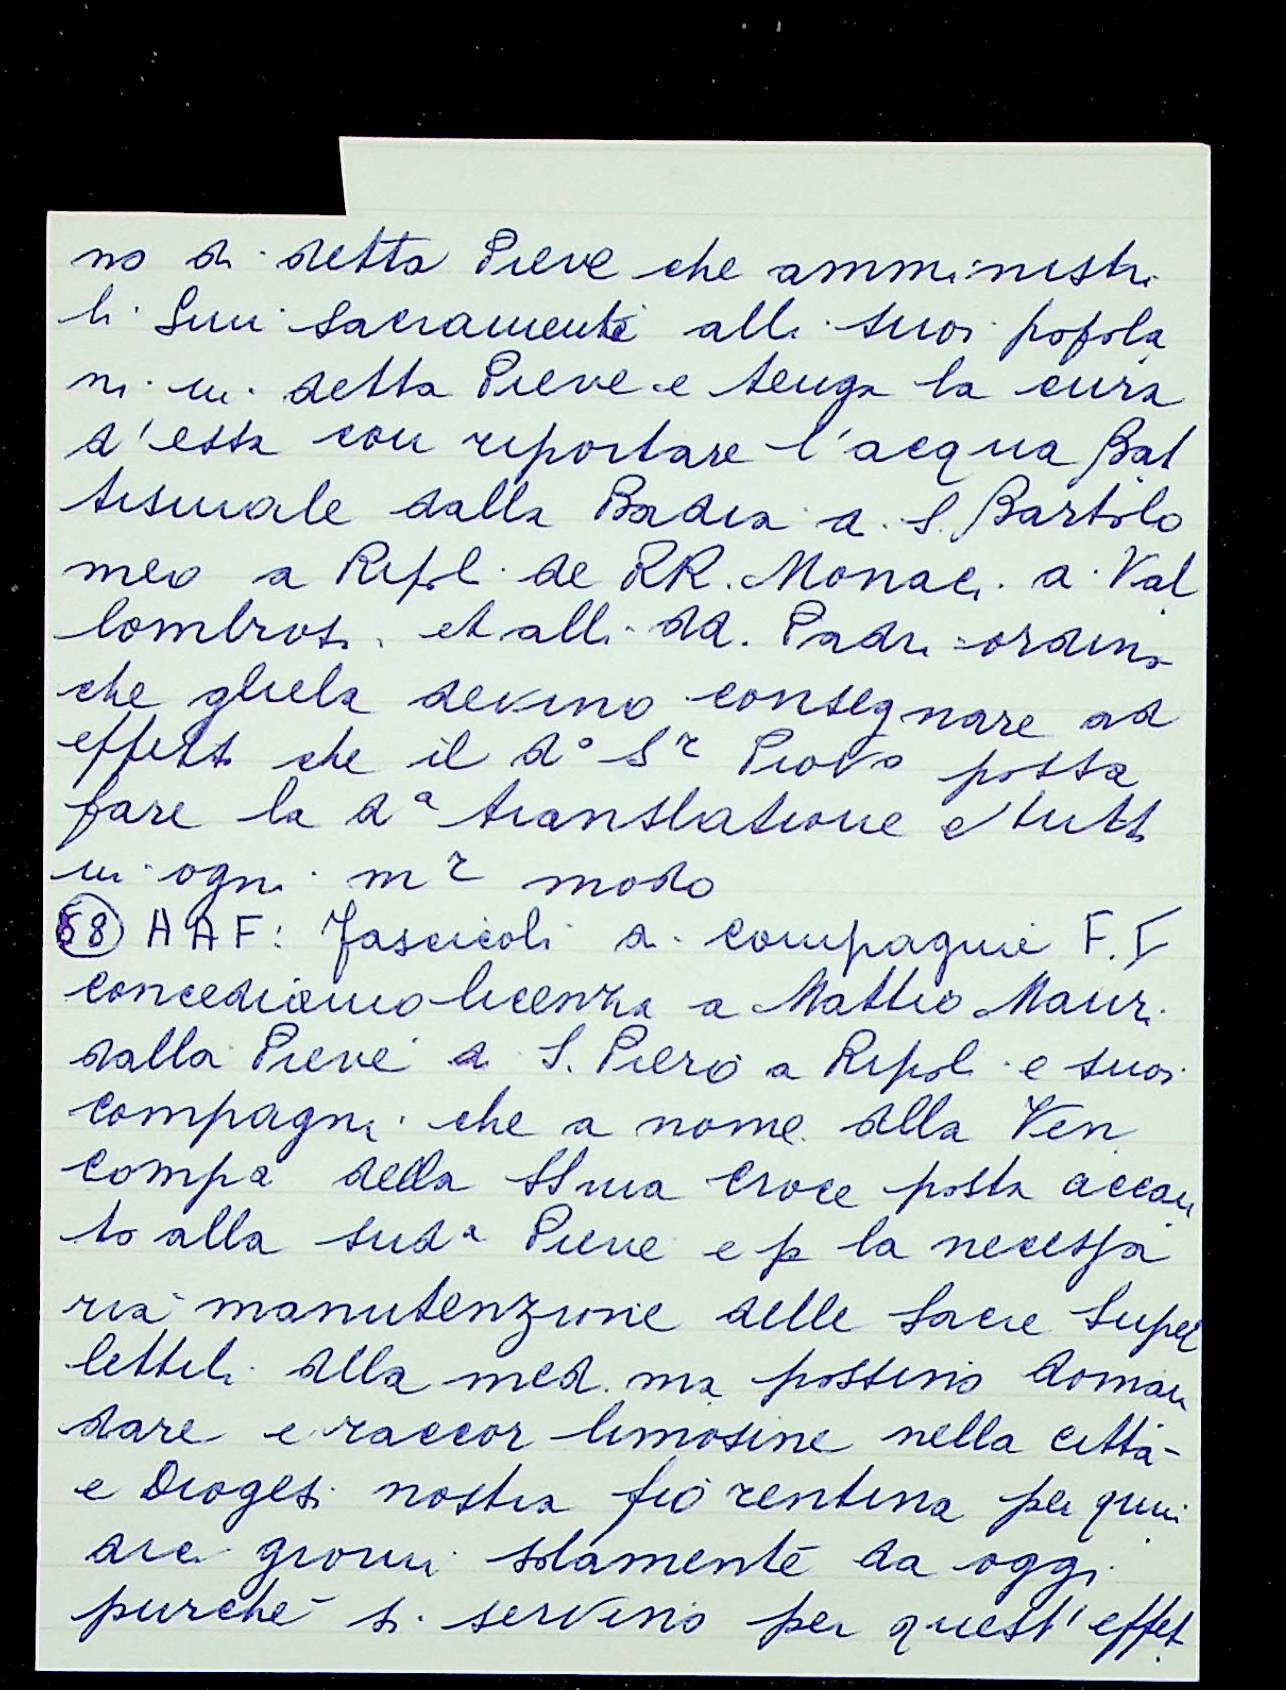 no di detta Pieve che amministri
li Smi Sacramenti alli suoi popola
ni in detta Pieve e tenga la cura
d'essa con riportare l'acqua Bat
tismale dalla Badia di S. Bartolo
meo a Ripoli de RR. Monaci di Val
lombrosi. et alli dd. Padri ordino
che gliela devino consegnare ad
effetto che il do Sr Piovo possa
fare la da translatione e tutto
in ogni mr modo
58 AAF: Fascicoli di compagnie F. I
concediamo licenzia a Matteo Mauri
dalla Pieve di S. Piero a Ripoli e suoi
compagni che a nome della Ven
Compa della SSma Croce posta accan
to alla suda Pieve e p la necessa
ria manutenzione delle Sacre Supel
lettili della med.ma possino doman
dare e raccor limosine nella città
e Diogesi nostra fiorentina per quin
dici giorni solamente da oggi
purché si servino per quest'effet